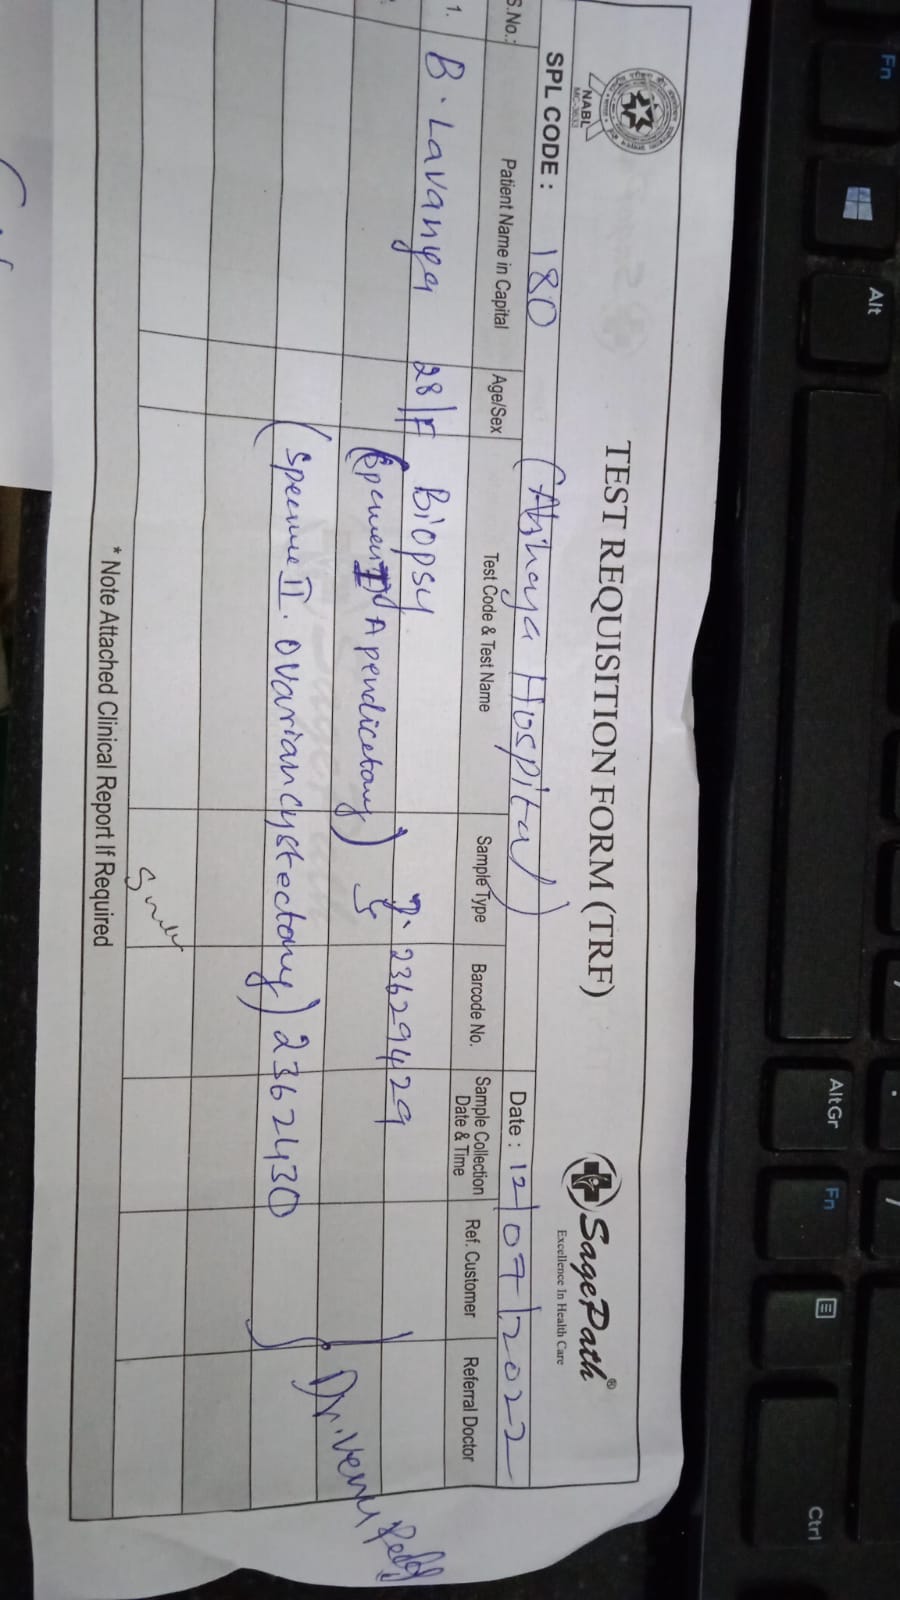 TEST REQUISITION FORM (TRF)
NABL
SagePath®
Excellence In Health Care
SPL CODE : 180 (Akshaya Hospital)
Date : 12/07/2022
S.No.: Patient Name in Capital Age/Sex Test Code & Test Name Sample Type Barcode No. Sample Collection Date & Time Ref. Customer Referral Doctor
1. B. Lavanya 28/F Biopsy 23629429
I Apendicetomy)
Dr. Venu Reddy
II. ovarian cystectomy) 2362430
* Note Attached Clinical Report If Required
Fn
Alt
AltGr
Fn
Ctrl